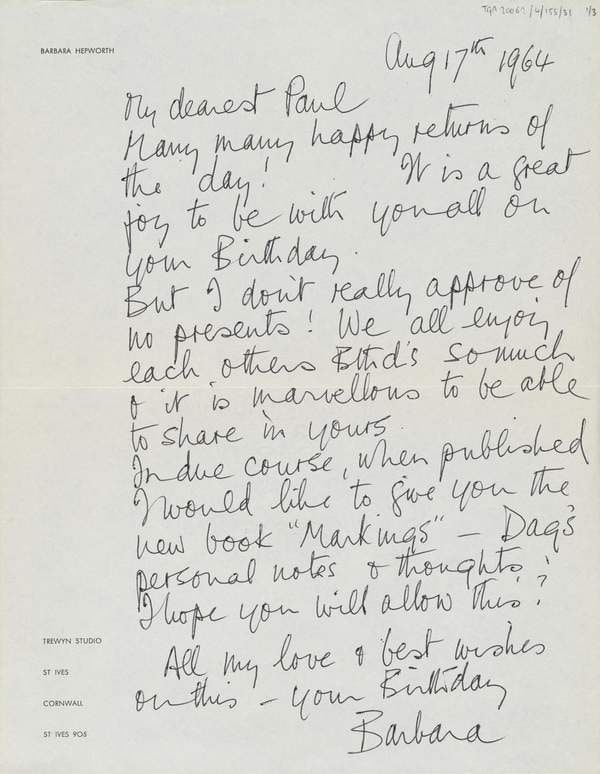 TGA 20062/4/155/31 1/3
BARBARA HEPWORTH
Aug 17th 1964
My dearest Paul
Many many happy returns of
the day! It is a great
joy to be with you all on
your Birthday.
But I don't really approve of
no presents! We all enjoy
each others Bthd's so much
& it is marvellous to be able
to share in yours.
In due course, when published
I would like to give you the
new book "Markings" — Dag's
personal notes & thoughts.
I hope you will allow this?
All my love & best wishes
on this - your Birthday
Barbara
TREWYN STUDIO
ST IVES
CORNWALL
ST IVES 905